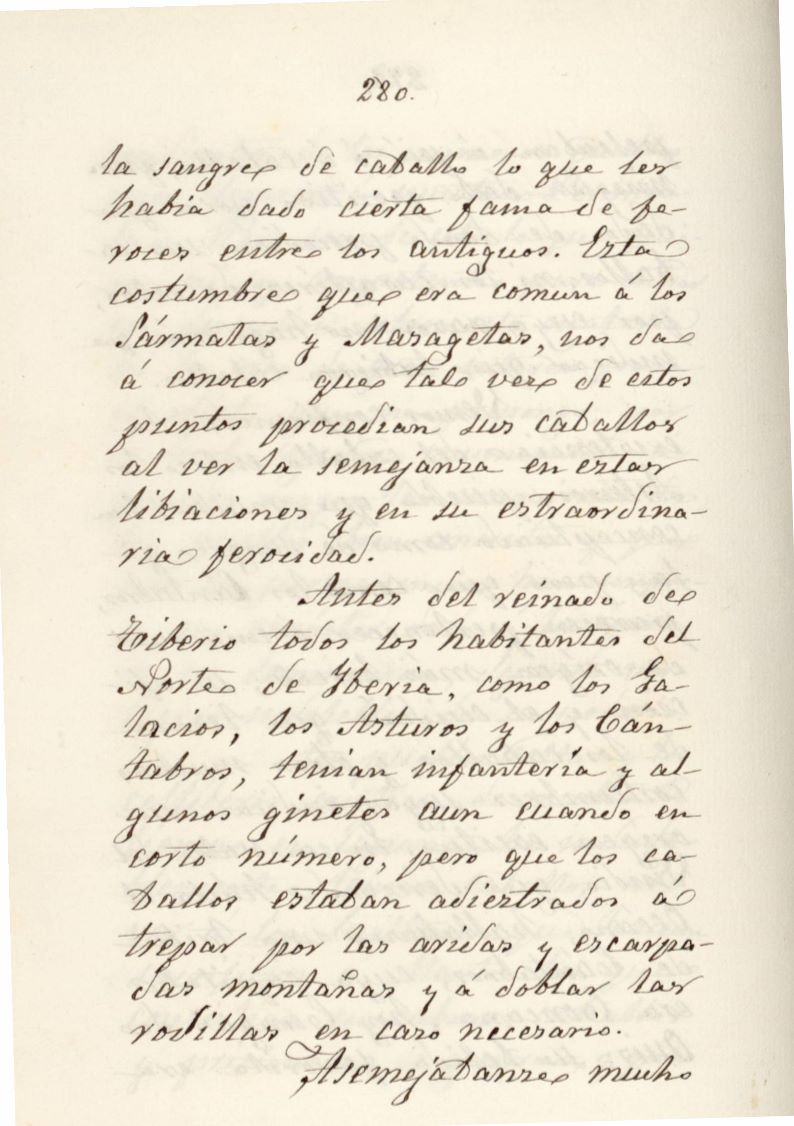 280.
la sangre de caballo lo que les
habia dado cierta fama de fe-
roces entre los antiguos. Esta
costumbre que era comun á los
Sármatas y Masagetas, nos da
á conocer que tal vez de estos
puntos procedian sus caballos
al ver la semejanza en estas
libiaciones y en su estraordina-
ria ferocidad.
Antes del reinado de
Tiberio todos los habitantes del
Norte de Iberia, como los Ga-
lacios, los Asturos y los Cán-
tabros, tenian infantería y al-
gunos ginetes aun cuando en
corto número, pero que los ca-
ballos estaban adiestrados á
trepar por las aridas y escarpa-
das montañas y á doblar las
rodillas en caso necesario.
Asemejabanse mucho